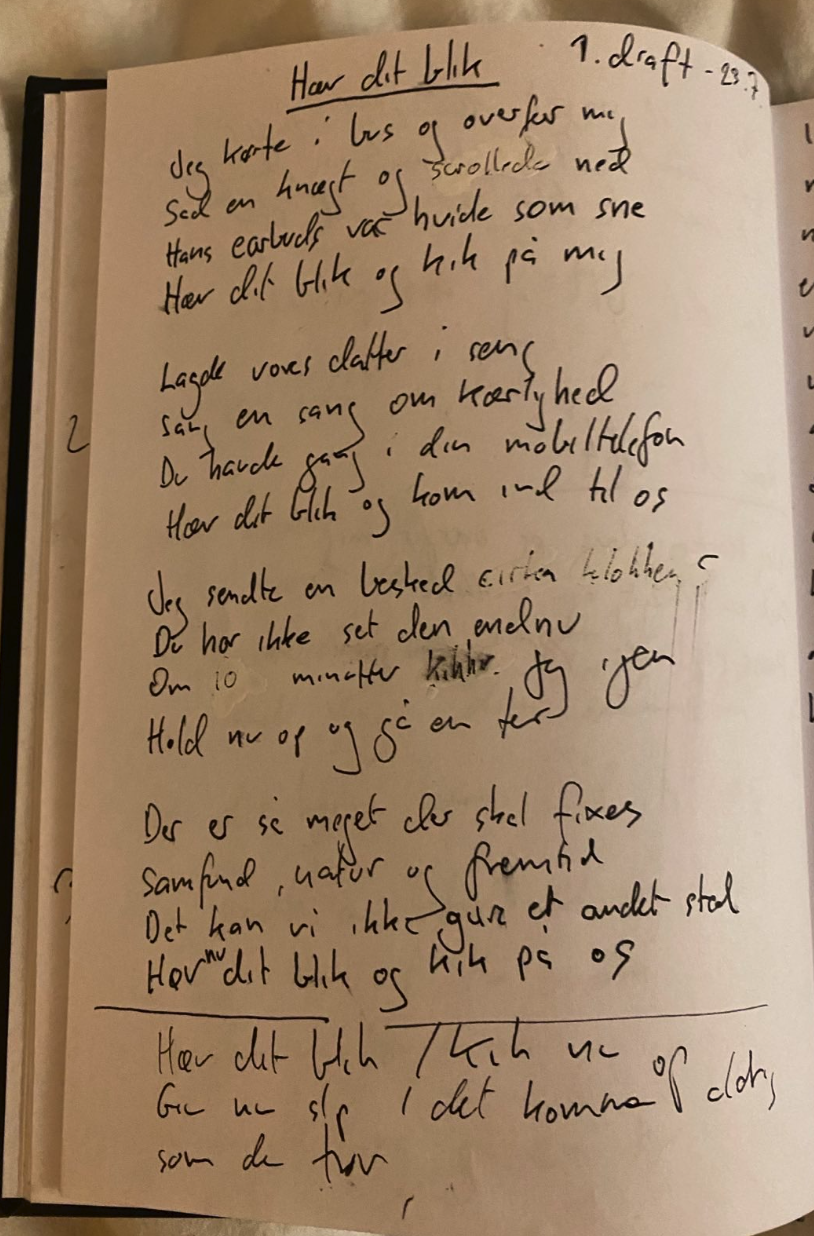 Hæv dit blik
1. draft - 23.7
Jeg kørte i bus og overfor mig
Sad en knægt og scrollede ned
Hans earbuds var hvide som sne
Hæv dit blik og kik på mig
Lagde vores datter i seng
sang en sang om kærlighed
2
Du havde gang i din mobiltelefon
Hæv dit blik og kom ind til os
Jeg sendte en besked cirka klokken
Du har ikke set den endnu
Om 10 minutter kikker jeg igen
Hold nu op og gå en tur
Der er så meget der skal fixes
Samfund, natur og fremtid
Det kan vi ikke gøre et andet sted
Hæv nu dit blik og kik på os
Hæv dit blik / kik nu op
Giv nu slip / det kommer aldrig
som du tror